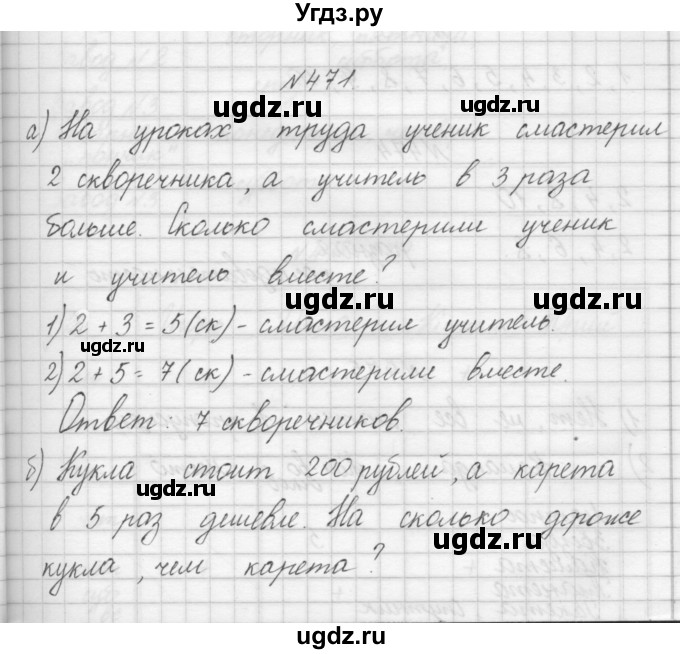 Угдз.ру
№471.
ugdz.ru ugdz.ru
а) На уроках труда ученик смастерил
2 скворечника, а учитель в 3 раза
ugdz.ru
больше. Сколько смастерили ученик
и учитель вместе?
ugdz.ru ugdz.ru
1) 2 + 3 = 5 (ск) - смастерил учитель.
ugdz.ru
2) 2 + 5 = 7 (ск) - смастерили вместе.
Ответ: 7 скворечников.
ugdz.ru
б) Кукла стоит 200 рублей, а карета
ugdz.ru
в 5 раз дешевле. На сколько дороже
ugdz.ru
кукла, чем карета?
ugdz.ru